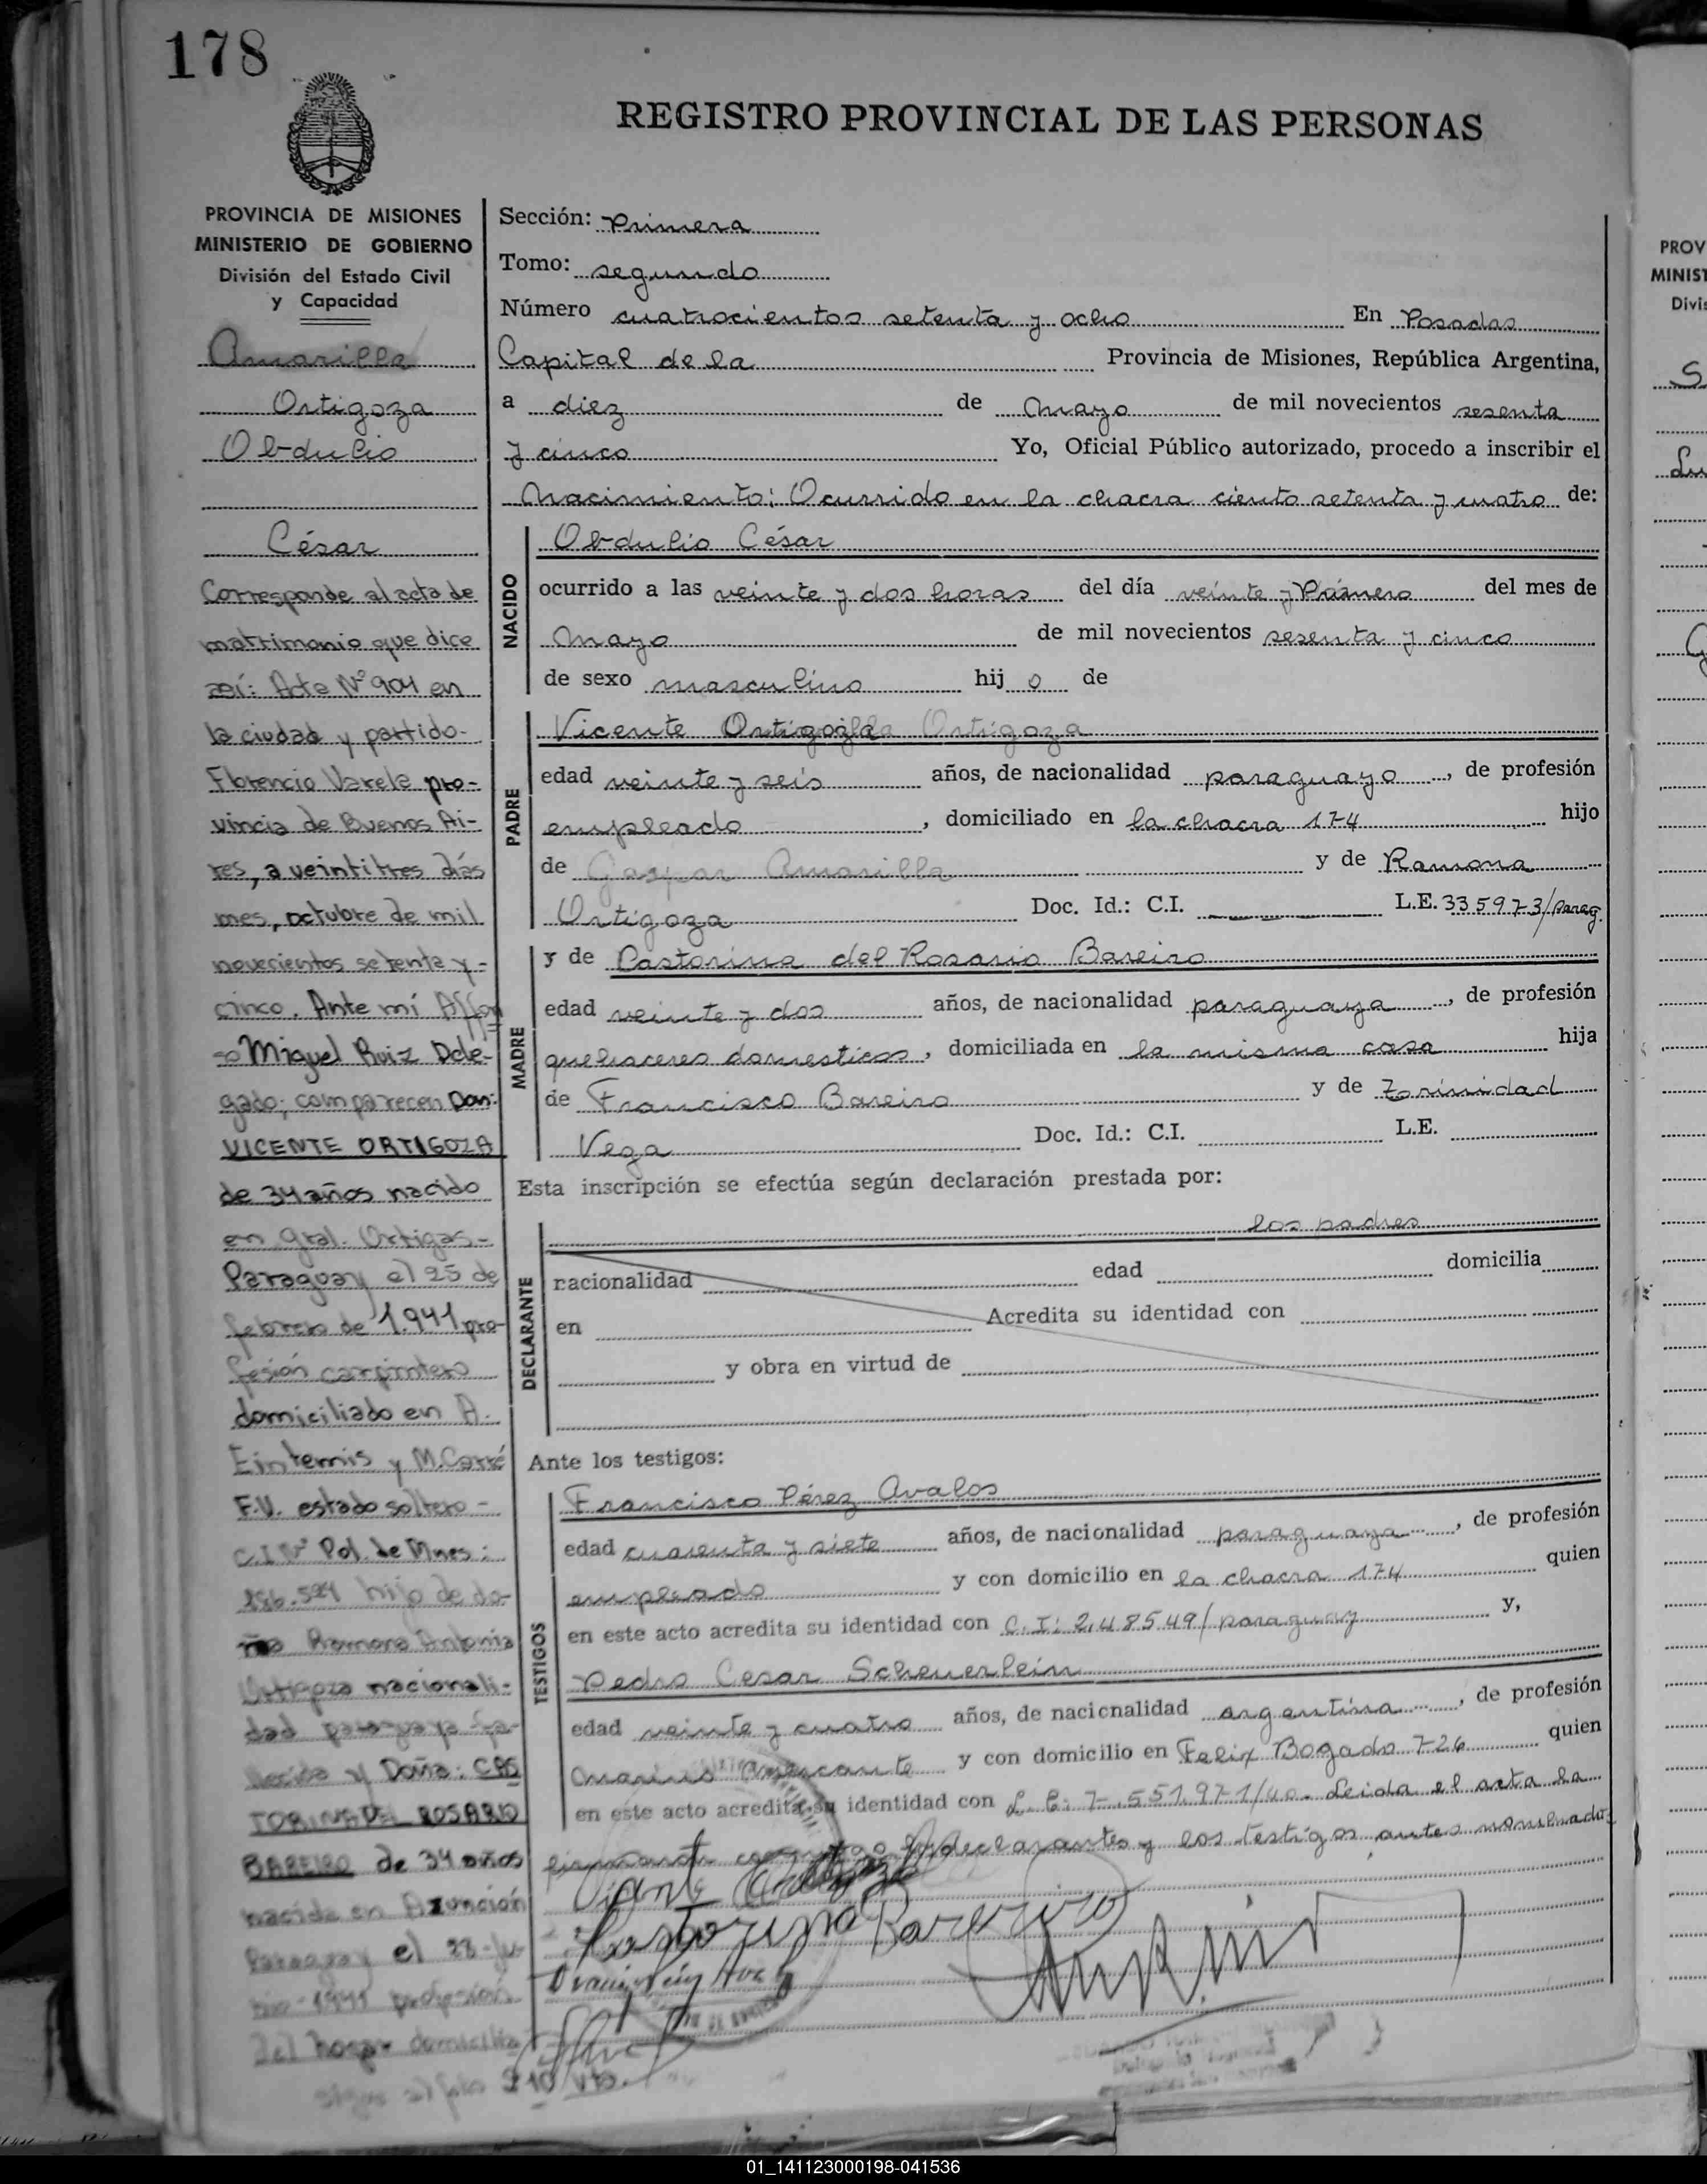 178
REGISTRO PROVINCIAL DE LAS PERSONAS
PROVINCIA DE MISIONES
MINISTERIO DE GOBIERNO
División del Estado Civil
y Capacidad
Amarilla
Ortigoza
Obdulio
César
Corresponde al acta de
matrimonio que dice
así: Acta Nº 904 en
la ciudad y partido
Florencio Varela pro-
vincia de Buenos Ai-
res, a veintitres días
mes, octubre de mil
novecientos setenta y -
cinco. Ante mí Alfon
so Miguel Ruiz Dele-
gado; comparecen Don:
VICENTE ORTIGOZA
de 34 años nacido
en Gral. Ortigas -
Paraguay el 25 de
febrero de 1.941 pro-
fesión carpintero
domiciliado en A.
y M.Carré
F.V. estado soltero -
C.I Nº Pol. de Mnes:
hijo de do-
ña Ramona Antonia
Ortigoza nacionali-
dad paraguaya fa-
llecida y Doña: CAS
TORINA DEL ROSARIO
BAREIRO de 34 años
nacida en Asunción
Paraguay el 28 - ju
nio - 1941 profesión
del hogar domicilia
210 vto.
Sección: Primera
Tomo: segundo
Número cuatrocientos setenta y ocho En Posadas
Capital de la Provincia de Misiones, República Argentina,
a diez de Mayo de mil novecientos sesenta
y cinco Yo, Oficial Público autorizado, procedo a inscribir el
Nacimiento: Ocurrido en la chacra ciento setenta y cuatro de:
NACIDO
Obdulio César
ocurrido a las veinte y dos horas del día veinte y Primero del mes de
Mayo de mil novecientos sesenta y cinco
de sexo masculino hij o de
PADRE
Vicente Ortigoza Ortigoza
edad veinte y seis años, de nacionalidad paraguayo, de profesión
empleado, domiciliado en la chacra 174 hijo
de Gaspar Amarilla y de Ramona
Ortigoza Doc. Id.: C.I. L.E. 335973/parag.
MADRE
y de Castorina del Rosario Bareiro
edad veinte y dos años, de nacionalidad paraguaya, de profesión
quehaceres domesticos, domiciliada en la misma casa hija
de Francisco Bareiro y de Trinidad
Vega Doc. Id.: C.I. L.E.
Esta inscripción se efectúa según declaración prestada por:
DECLARANTE
los padres
nacionalidad edad domicilia
en Acredita su identidad con
y obra en virtud de
Ante los testigos:
TESTIGOS
Francisco Pérez Avalos
edad cuarenta y siete años, de nacionalidad paraguaya, de profesión
empleado y con domicilio en la chacra 174 quien
en este acto acredita su identidad con C.I: 2,48549/paraguay y,
Pedro Cesar Scheuerlein
edad veinte y cuatro años, de nacionalidad argentina, de profesión
Marino Mercante y con domicilio en Felix Bogado 726 quien
en este acto acredita su identidad con L.E: 7.551.971/40. Leida el acta la
firmando conmigo los declarantes y los testigos antes nombrados
Castorina Bareiro
01_141123000198-041536